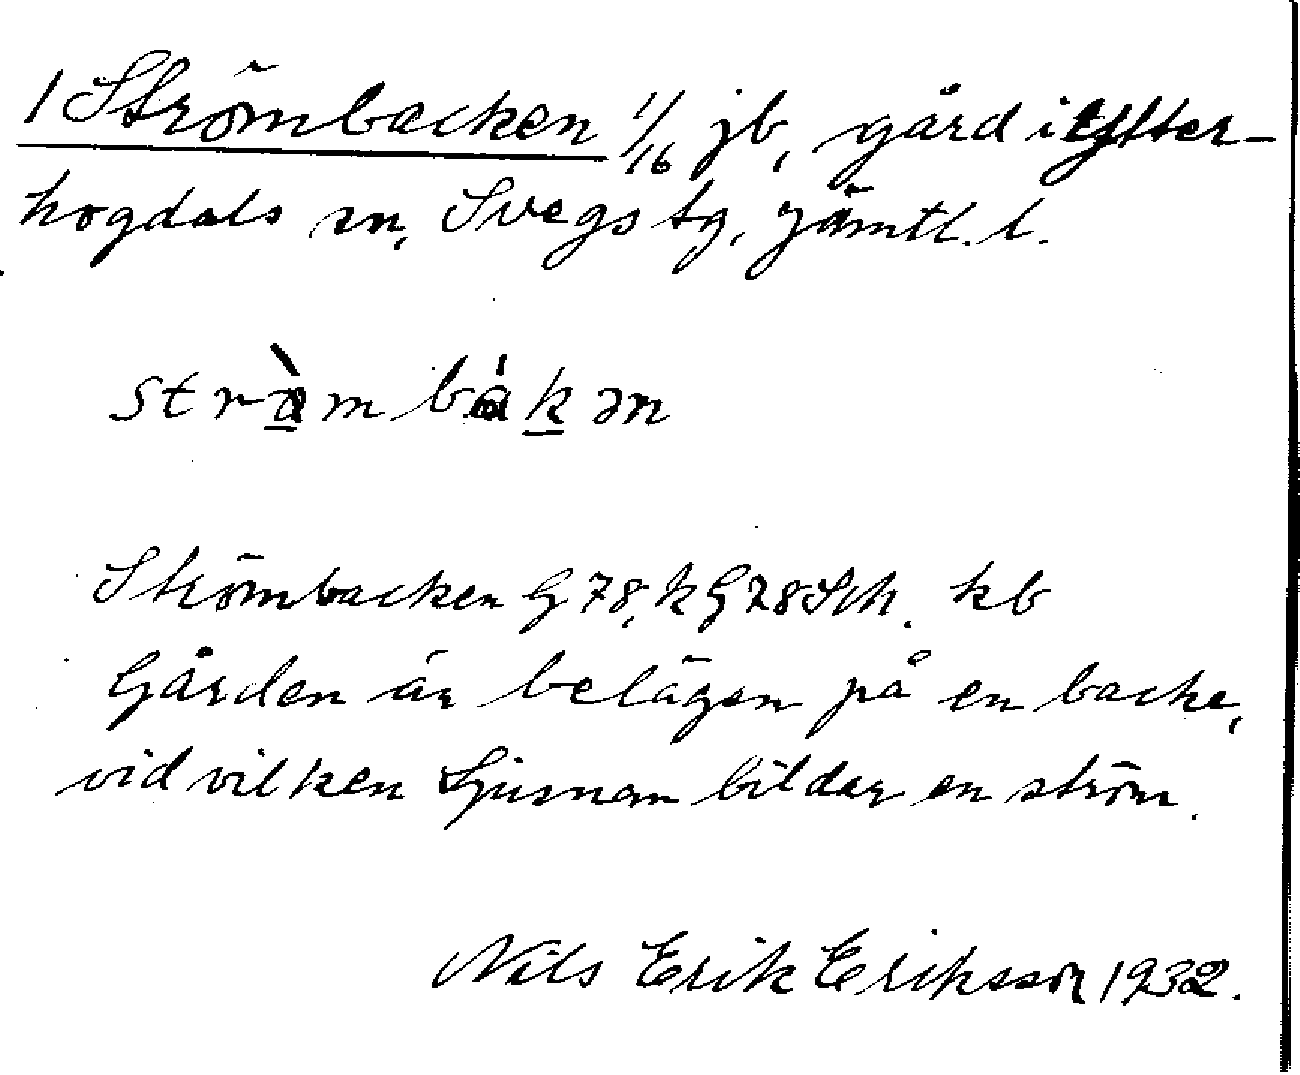 1 Strömbacken 1/16 jb, gård i Ytter-
hogdals sn, Svegs tg, Jämtl. l.
stràmbákən
Strömbacken G 78, k G 28 Sch. kb
Gården är belägen på en backe,
vid vilken Ljusnan bildar en ström.
Nils Erik Eriksson 1932.